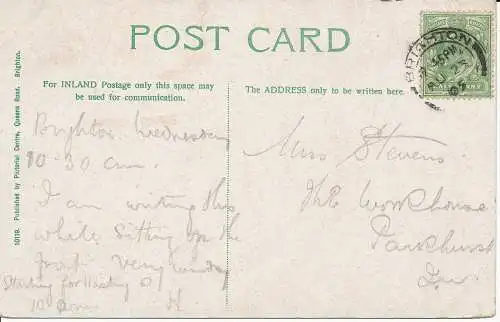 POST CARD
For INLAND Postage only this space may
be used for communication.
The ADDRESS only to be written here.
BRIGHTON
10119. Published by Pictorial Centre, Queens Road, Brighton.
Brighton Wednesday
10-30 am.
I am writing this
while sitting on the
front very windy
Starting for Hastings
10
H
Miss Stevens
The Workhouse
Parkhurst